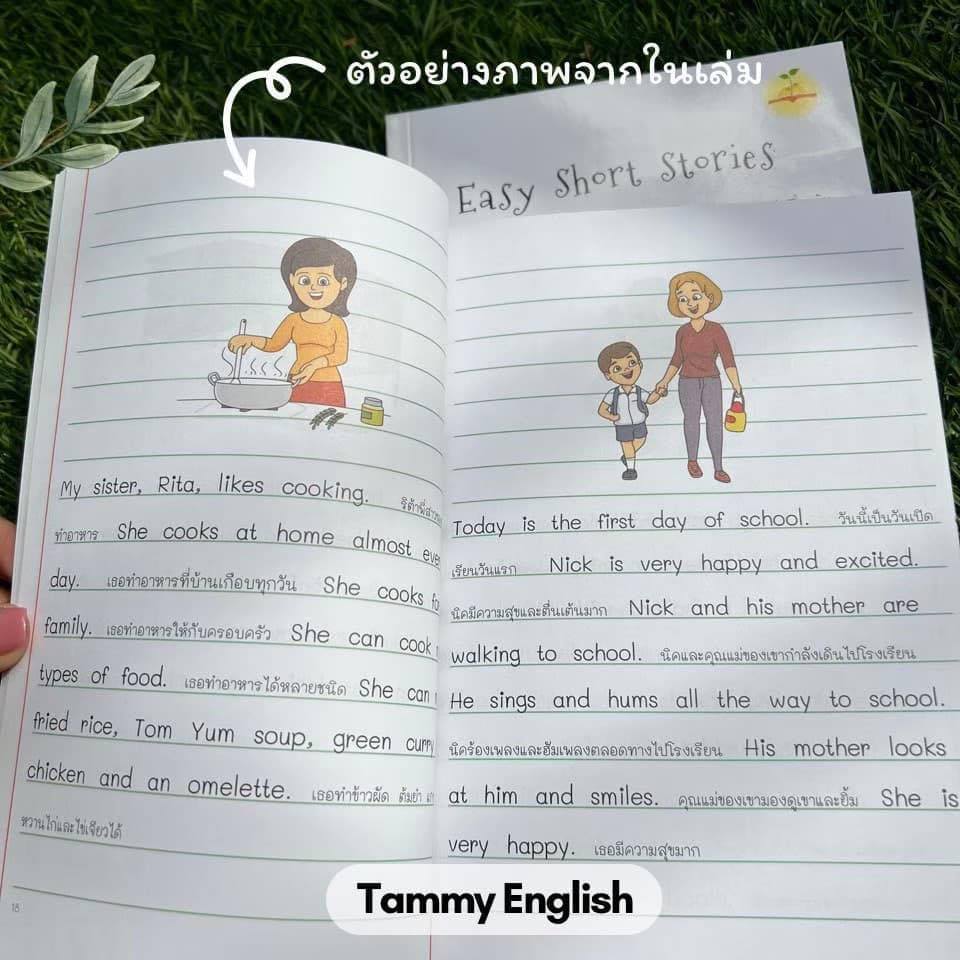 ตัวอย่างภาพจากในเล่ม
Easy Short Stories
My sister, Rita, likes cooking.
ทำอาหาร She cooks at home almost
day. เธอทำอาหารที่บ้านเกือบทุกวัน She cooks
family. เธอทำอาหารให้กับครอบครัว She can cook
types of food. เธอทำอาหารได้หลายชนิด She can
fried rice, Tom Yum soup, green curry
chicken and an omelette. เธอทำข้าวผัด ต้มยำ
หวานไก่และไข่เจียวได้
18
Today is the first day of school. วันนี้เป็นวันเปิด
เรียนวันแรก Nick is very happy and excited.
นิคมีความสุขและตื่นเต้นมาก Nick and his mother are
walking to school. นิคและคุณแม่ของเขากำลังเดินไปโรงเรียน
He sings and hums all the way to school.
นิคร้องเพลงและฮัมเพลงตลอดทางไปโรงเรียน His mother looks
at him and smiles. คุณแม่ของเขามองดูเขาและยิ้ม She is
very happy. เธอมีความสุขมาก
Tammy English